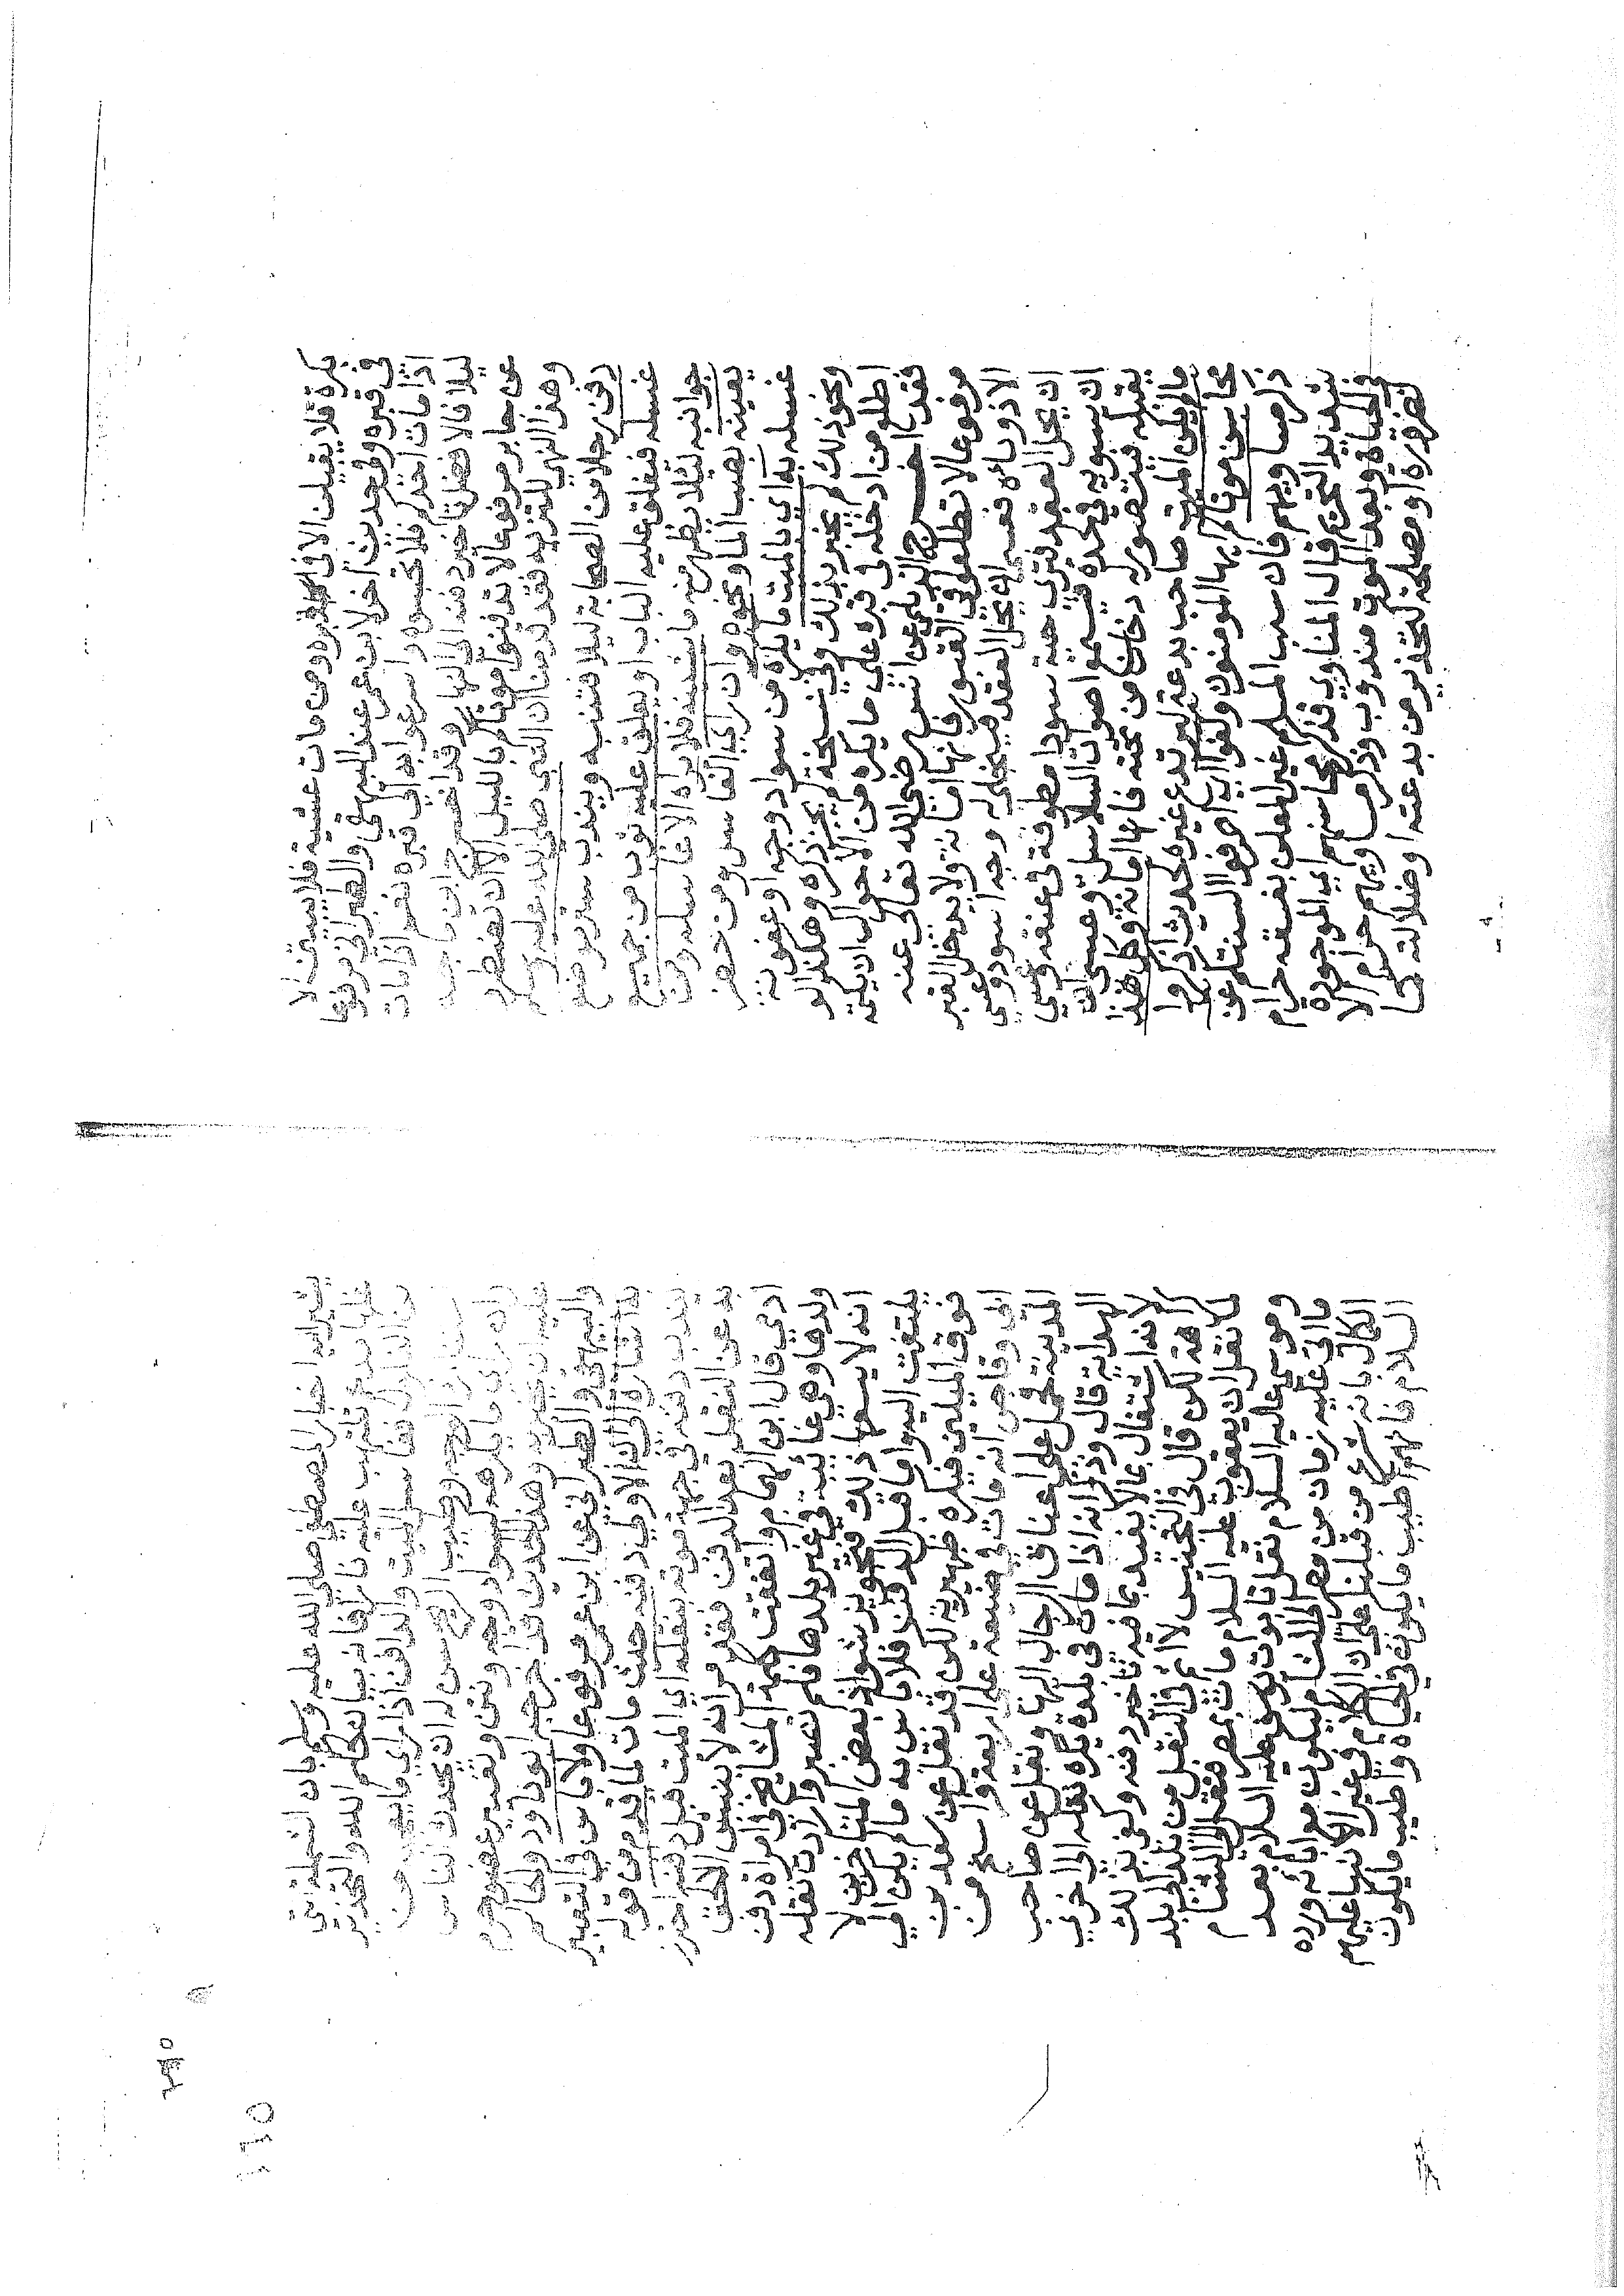 بكرة فلا يقيلن الا في قبره ومن مات عشية فلا يبيتن الا
في قبره وفي حديث اخر لابن عمر عند البيهقي والطبراني مرفوعا
اذا مات احدكم فلا تحبسوه واسرعوا به الى قبره نعم اذا مات
ليلا فالافضل تاخير دفنه الى النهار وقد اخرج ابن ماجه
عن جابر مرفوعا لا تدفنوا موتاكم بالليل الا ان تضطروا
وهذا النهي للتنزيه فقد روينا ان النبي صلى الله عليه وسلم
دفن رجلا من الصحابة ليلا فتنبه ويندب ستر موضع
غسله فيغلق عليه الباب او يعلق عليه ثوب من جميع
جوانبه لئلا يظهر منه ما يشينه فلا يراه الا غاسله ومن
يعينه بصب الماء ونحوه وان راي الغاسل ومن حضر
غسله به اي بالميت ما يكره من سواد وجه او عفونة
ونحو ذلك لم يخبر بذلك وفي نسخة لم يذكره وهكذا لو
اطلع من ادخله في قبره على ما يكره من الاحوال
فقد اخرج الديلمي عن انس رضي الله تعالى عنه
مرفوعا لا تطلعوا في القبور فانها امانة ولا يدخل القبر
الا ذو امانة فعسى ان يحل العقد فيتجلى له وجه اسود وعسى
ان يحل العقد فيرى حية سودا مطوقة في عنقه وعسى
ان يسويه في لحده فيسمع اصوات السلاسل وعسى ان
يقبله فيتصور له دخان من تحته فانها امانة وكل هذا
ما لم يكن الميت صاحب بدعة ليرتدع غيره لحديث اذكروا
محاسن موتاكم ايها المومنون وكفوا اي اصرفوا السنتكم عن
ذكر مساويهم فان سب المسلم غير المعلن بفسقه حرام
شديد التحريم قال المناوي فذكر محاسنهم اي الموجودة
في الحياة وبعد الموت مندوب وذكر مساويهم حرام الا
لضرورة او مصلحة كتحذير من بدعته او ضلالته كما
تشير اليه اخبار المصطفى صلى الله عليه وسلم بان الشملة التي
تلتهب عليه نارا فان فيه بيانا لحكم الله والتحذير
غاسل الميت والدافن اذا راي ما
وطيب الريح سن له ان يحدث الناس
راي ما يكرهه كسواد وجه ونتن وتغيير عضو حرم
وهذا الحديث قد اخرجه ابو داود والحاكم
والبيهقي والطبراني عن ابن عمر مرفوعا ولا باس في التعبير
اشارة الى ان الاولى دفنه حيث مات لما قدم من قوله
يندب دفنه في جهة موته بنقله اي الميت قبل دفنه احترز
به عن النقل بعد الدفن فقد مر انه لا ينبش الا لحق
ادمي قال ابن الهمام واتفقت كلمة المشايخ في امراة دفن
ولدها وهي غائبة في غير بلدها فلم تصبر وارادت نقله
انه لا يسعها ذلك فتجويز شواذ بعض المتاخرين لا
يلتفت اليه واما قبل الدفن فلا باس به ما لم يكن الى
فوق الميلين فيكره ظهيرية لكن قد نقل عن سعد بن
ابي وقاص انه مات في ضيعة على اربعة فراسخ من
المدينة فحمل على اعناق الرجال اليها ونقل عن صاحب
الهداية قال وذكر انه اذا مات في بلدة يكره نقله الى اخرى
لانه اشتغال بما لا يفيد بما فيه تاخير دفنه وكفى بذلك
كراهة لكن قال في التجنيس لا اثم في النقل من بلد الى بلد
لما نقل ان يعقوب عليه السلام مات بمصر فنقل الى الشام
وموسى عليه السلام نقل تابوت يوسف عليه السلام بعد
ما اتى عليه زمان من مصر الى الشام ليكون مع ابائه ورده
الكمال بانه شرع من قبلنا على ان الكلام في غير الانبياء عليهم
السلام فانهم اطيب ما يكون في الحياة واطيب ما يكون